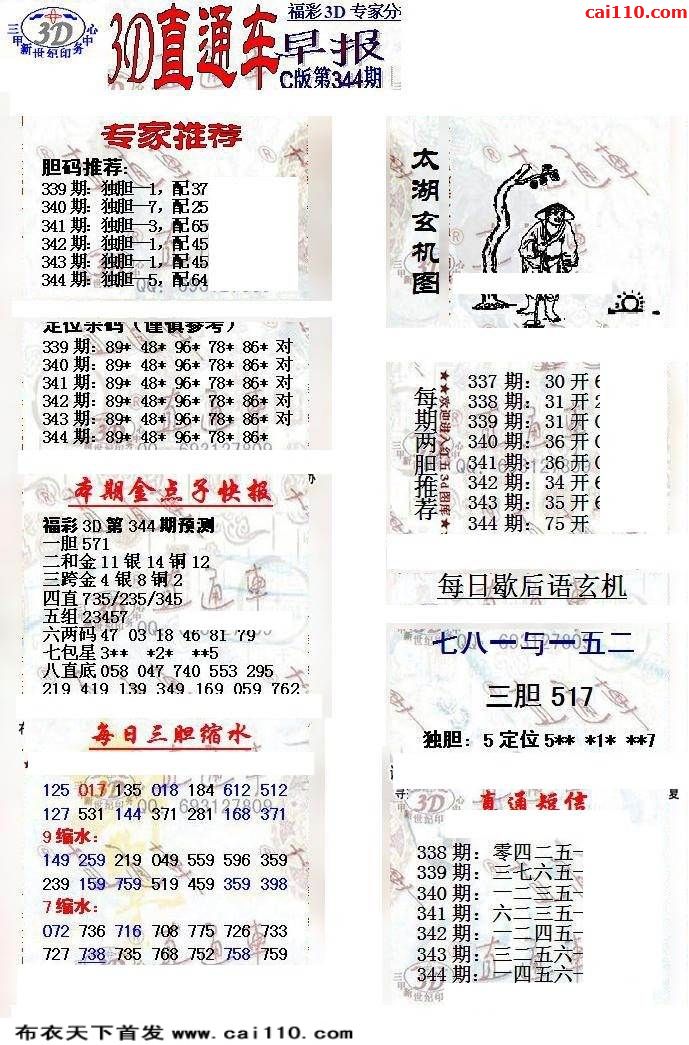 福彩3D 专家分
cai110.com
三甲 新世纪印务 中心
3D
3D直通车
早报
C版第344期
专家推荐
胆码推荐:
339期: 独胆—1, 配37
340期: 独胆—7, 配25
341期: 独胆—3, 配65
342期: 独胆—1, 配45
343期: 独胆—1, 配45
344期: 独胆—5, 配64
定位杀码（谨慎参考）
339期: 89* 48* 96* 78* 86* 对
340期: 89* 48* 96* 78* 86* 对
341期: 89* 48* 96* 78* 86* 对
342期: 89* 48* 96* 78* 86* 对
343期: 89* 48* 96* 78* 86* 对
344期: 89* 48* 96* 78* 86*
本期金点子快报
福彩3D第344期预测
一胆571
二和金11银14铜12
三跨金4银8铜2
四直735/235/345
五组23457
六两码47 03 18 46 81 79
七包星3** *2* **5
八直底058 047 740 553 295
219 419 139 349 169 059 762
每日三胆缩水
125 017 135 018 184 612 512
127 531 144 371 281 168 371
9缩水:
149 259 219 049 559 596 359
239 159 759 519 459 359 398
7缩水:
072 736 716 708 775 726 733
727 738 735 768 752 758 759
太湖玄机图
每期两胆推荐
★★欢迎进入红五3d图库★
337期: 30开6
338期: 31开2
339期: 31开0
340期: 36开0
341期: 36开0
342期: 34开6
343期: 35开6
344期: 75开
每日歇后语玄机
七八一与一五二
三胆 517
独胆: 5 定位5** *1* **7
直通短信
338期: 零四二五一
339期: 三七六五一
340期: 一二三五一
341期: 六二三五一
342期: 一二四五一
343期: 三二五六一
344期: 一四五六一
布衣天下首发 www.cai110.com